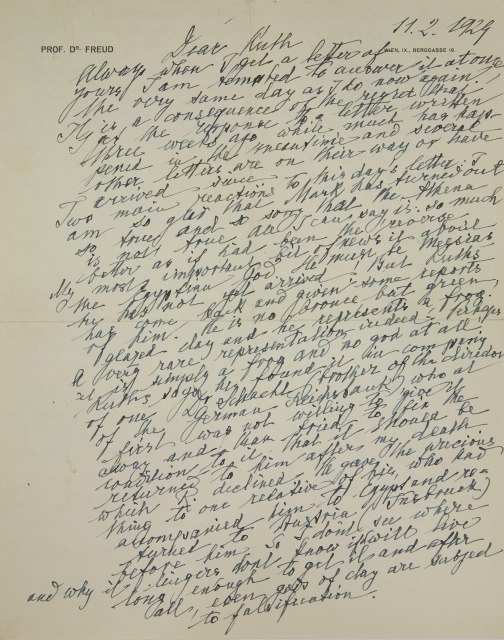 11.2.1929
PROF. DR. FREUD
WIEN, IX., BERGGASSE 19.
Dear Ruth
Always when I get a letter of
yours I am tempted to answer it at once
the very same day as I do now again.
It is a consequence of the regret that
as the response to a letter written
three weeks ago while much has hap-
pened in the meantime and several
other letters are on their way or have
arrived since.
Two main reactions to this day's letter: I
am so glad that Mark has turned out
so true and so sorry that the Athena
is not true. All I can say is: so much
better as if had been the reverse.
My most important bit of news is about
the Egyptian God. He must be Messias
he has not yet arrived. But Ruths
has come back and given some reports
of him. He is no bronce but green
glazed clay and he represents a frog.
A very rare representation indeed. Perhaps
it is simply a frog and no god at all.
Ruths says he found it in company
of one Dr Schacht (brother of the director
of the German Reichsbank) who at
first was not willing to give it
away and then tried to fix the
condition to it that it should be
returned to him after my death
which R. declined. He gave the precious
thing to one relative of his, who had
accompanied him to Egypt and re-
turned to Austria (Insbruck)
before him. So I don't see where
and why it lingers don't know if will live
long enough to get it and after
all, even gods of clay are subject
to falsification.